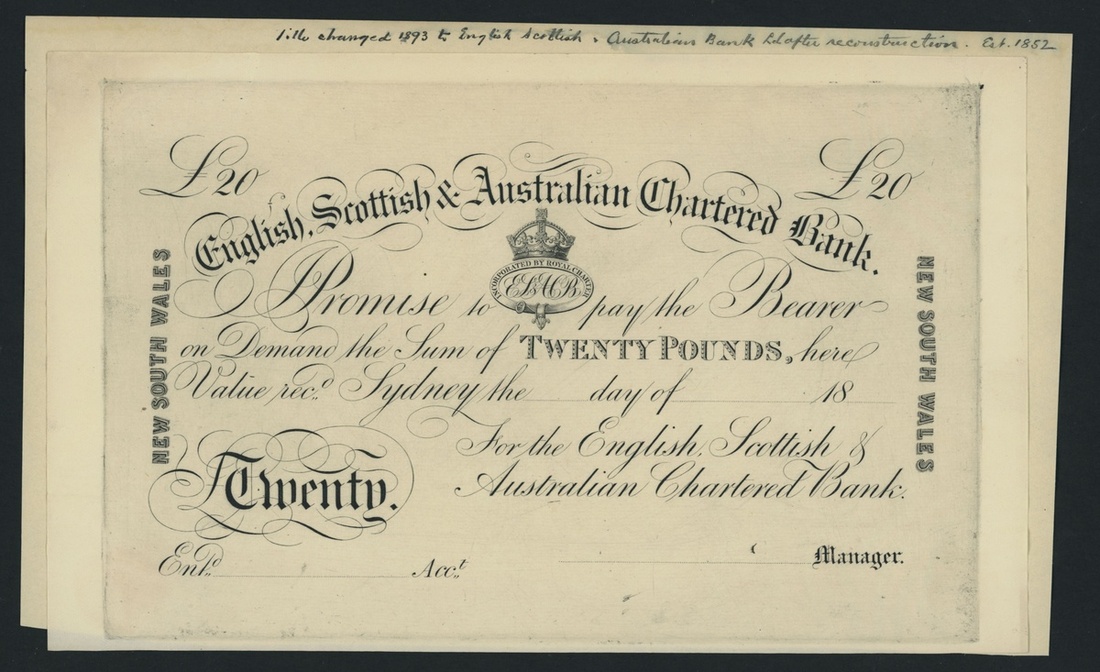 Title changed 1893 to English Scottish & Australian Bank Ld after reconstruction. Est. 1852
£20 £20
English, Scottish & Australian Chartered Bank.
INCORPORATED BY ROYAL CHARTER
ES&ACB
NEW SOUTH WALES
NEW SOUTH WALES
I Promise to pay the Bearer
on Demand the Sum of TWENTY POUNDS, here
Value rec.d Sydney the day of 18
For the English, Scottish &
Twenty. Australian Chartered Bank.
Ent.d Acc.t Manager.